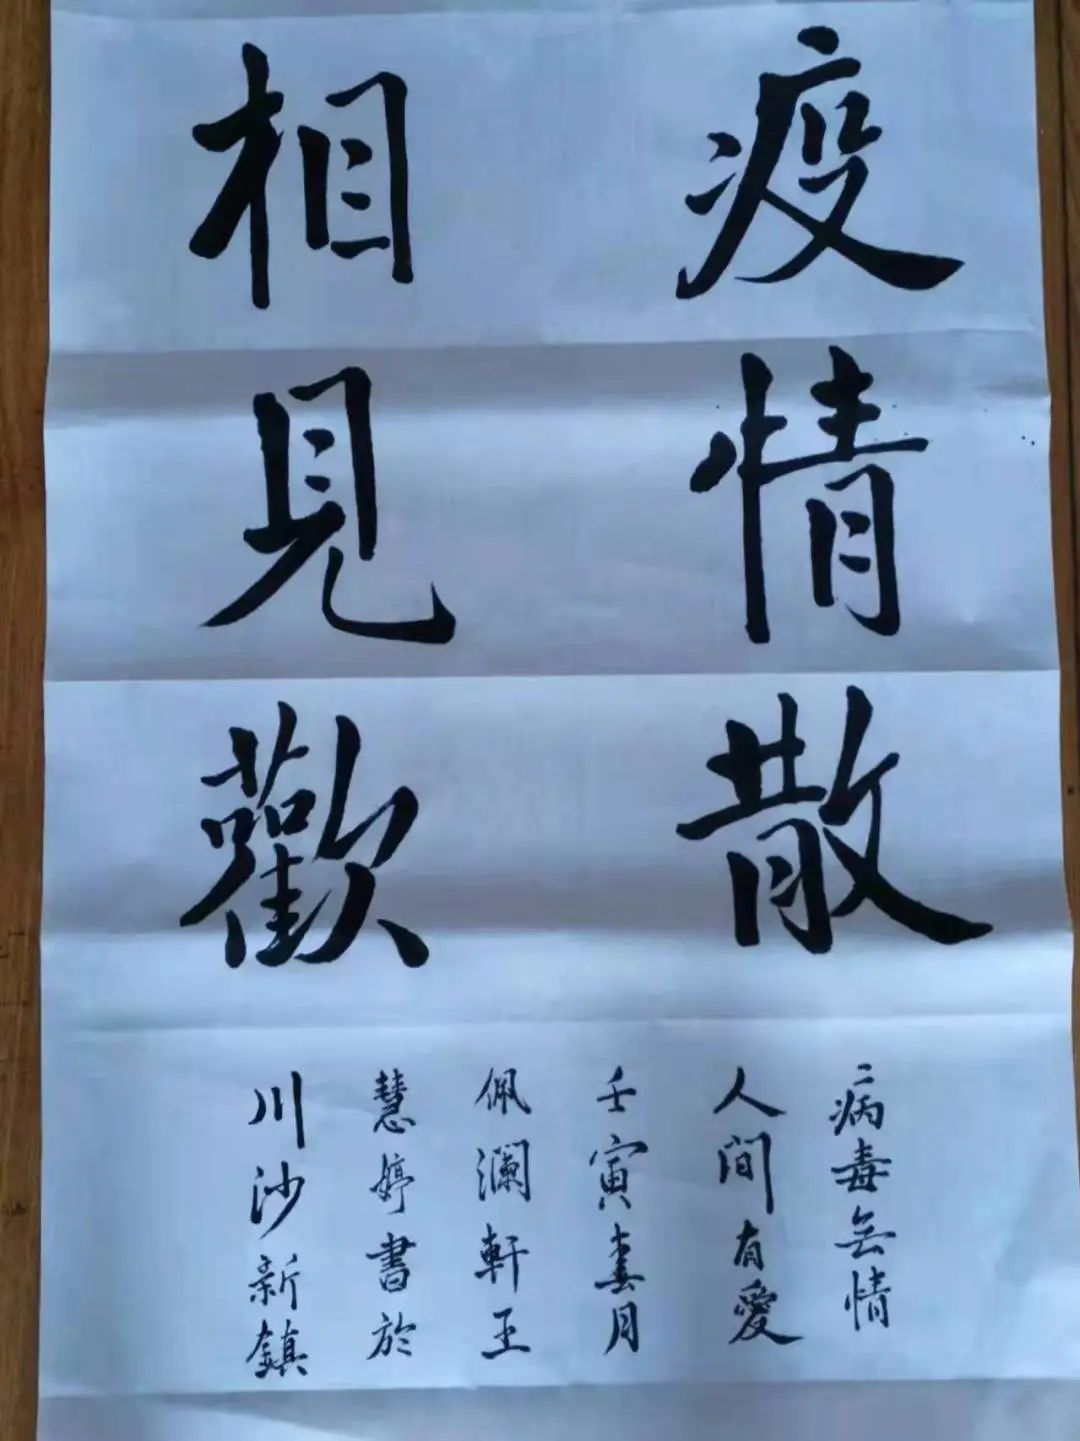 疫情散
相見歡
病毒無情
人間有愛
壬寅月
佩瀾軒王
慧婷書於
川沙新鎮